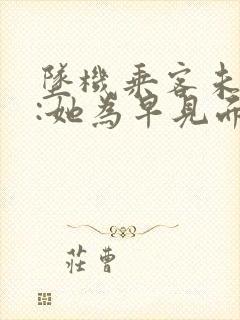 墜機乘客未
:她為早見而
莊曹